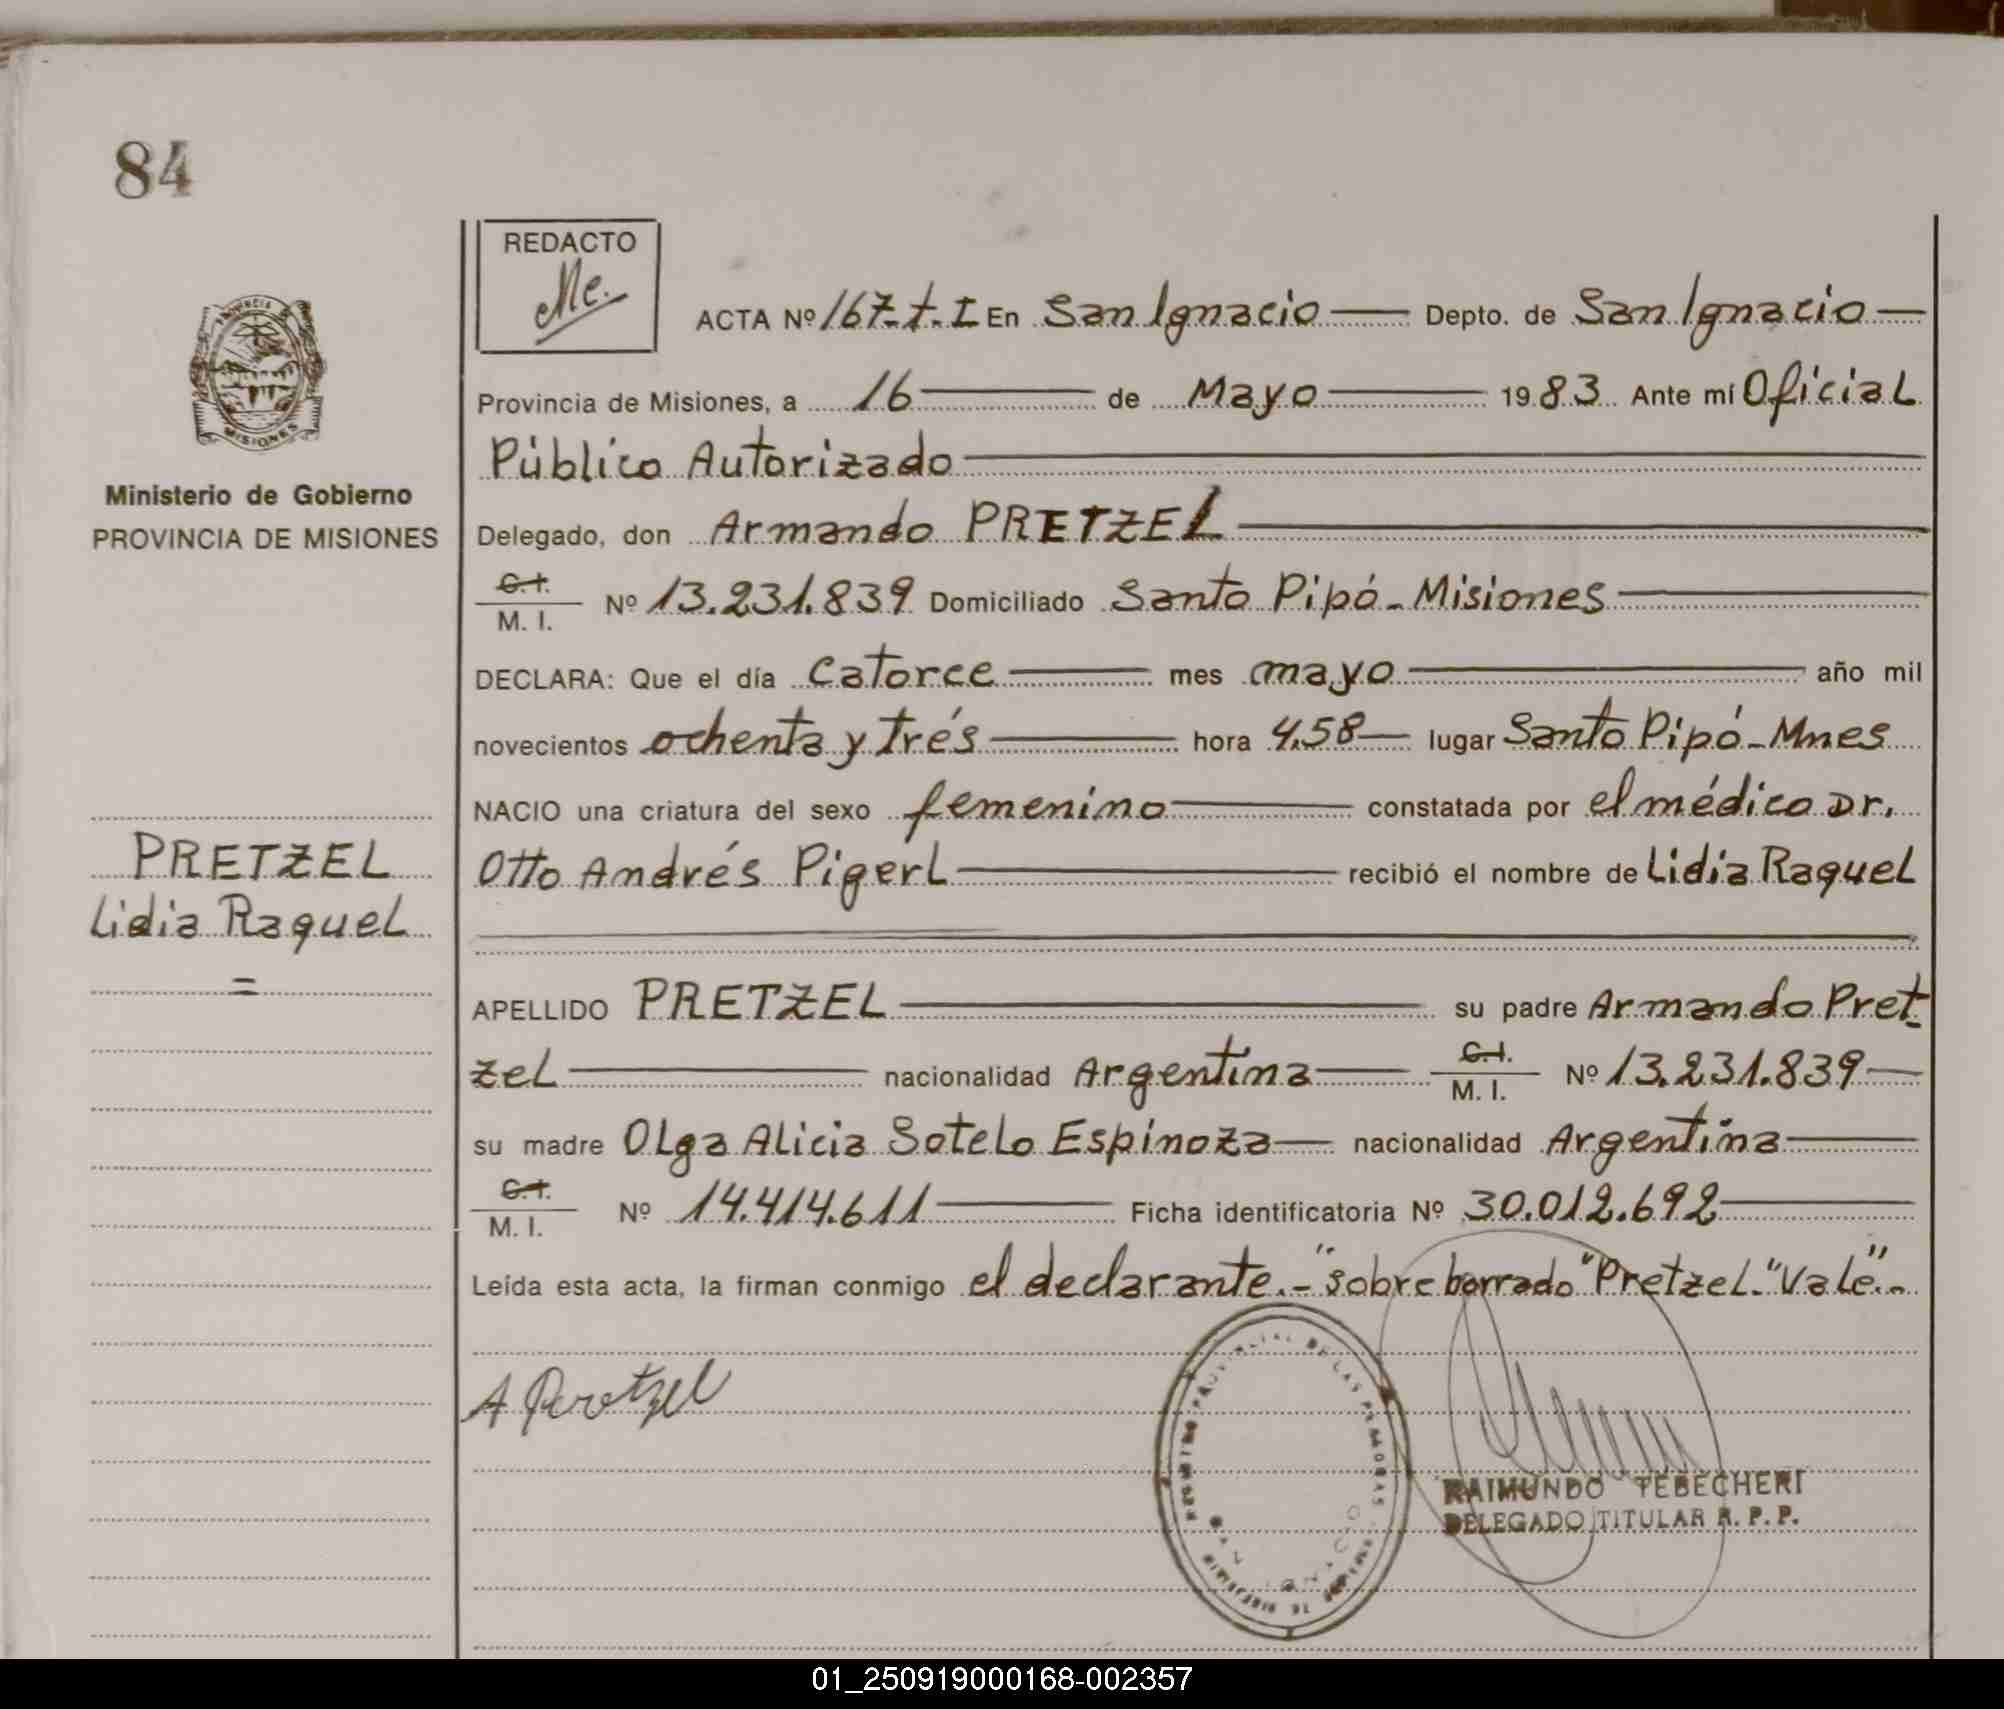 84
REDACTO
ACTA Nº 167-t-I En San Ignacio Depto. de San Ignacio
Provincia de Misiones, a 16 de Mayo 1983 Ante mí Oficial
Público Autorizado
MISIONES
Ministerio de Gobierno
PROVINCIA DE MISIONES
Delegado, don Armando PRETZEL
C.I.
M. I. Nº 13.231.839 Domiciliado Santo Pipó - Misiones
DECLARA: Que el día catorce mes mayo año mil
novecientos ochenta y trés hora 4.58 lugar Santo Pipó - Mnes
NACIO una criatura del sexo femenino constatada por el médico Dr.
Otto Andrés Pigerl recibió el nombre de Lidia Raquel
PRETZEL
Lidia Raquel
=
APELLIDO PRETZEL su padre Armando Pret-
zel nacionalidad Argentina C.I. M. I. Nº 13.231.839
su madre Olga Alicia Sotelo Espinoza nacionalidad Argentina
C.I.
M. I. Nº 14.414.611 Ficha identificatoria Nº 30.012.692
Leída esta acta, la firman conmigo el declarante.- "sobre borrado" Pretzel. "Vale".-
A Pretzel
PROVINCIAL DE LAS PERSONAS
RAIMUNDO TEBECHERI
DELEGADO TITULAR R. P. P.
01_250919000168-002357